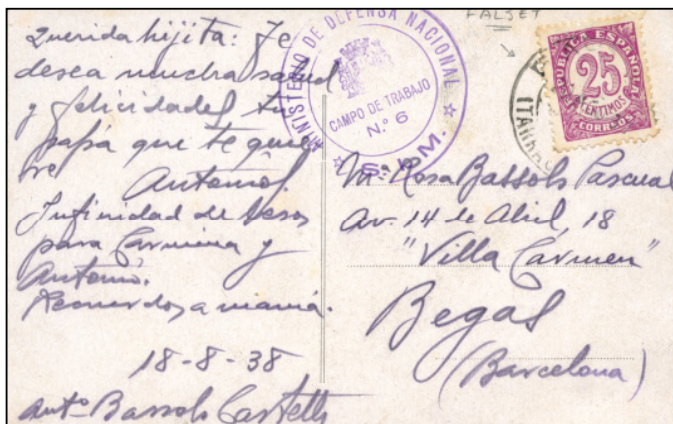 Querida hijita: Te
desea mucha salud
y felicidades tu
papá que te quie
re Antonio.
Infinidad de besos
para Carmina y
Antonio.
Recuerdos a mamá.
18-8-38
Antº Bassols Castells
MINISTERIO DE DEFENSA NACIONAL
CAMPO DE TRABAJO
N.º 6
S. I. M.
FALSET
REPUBLICA ESPAÑOLA
25
CENTIMOS
CORREOS
Mª Rosa Bassols Pascual
Av. 14 de Abril, 18
"Villa Cármen"
Begas
(Barcelona)